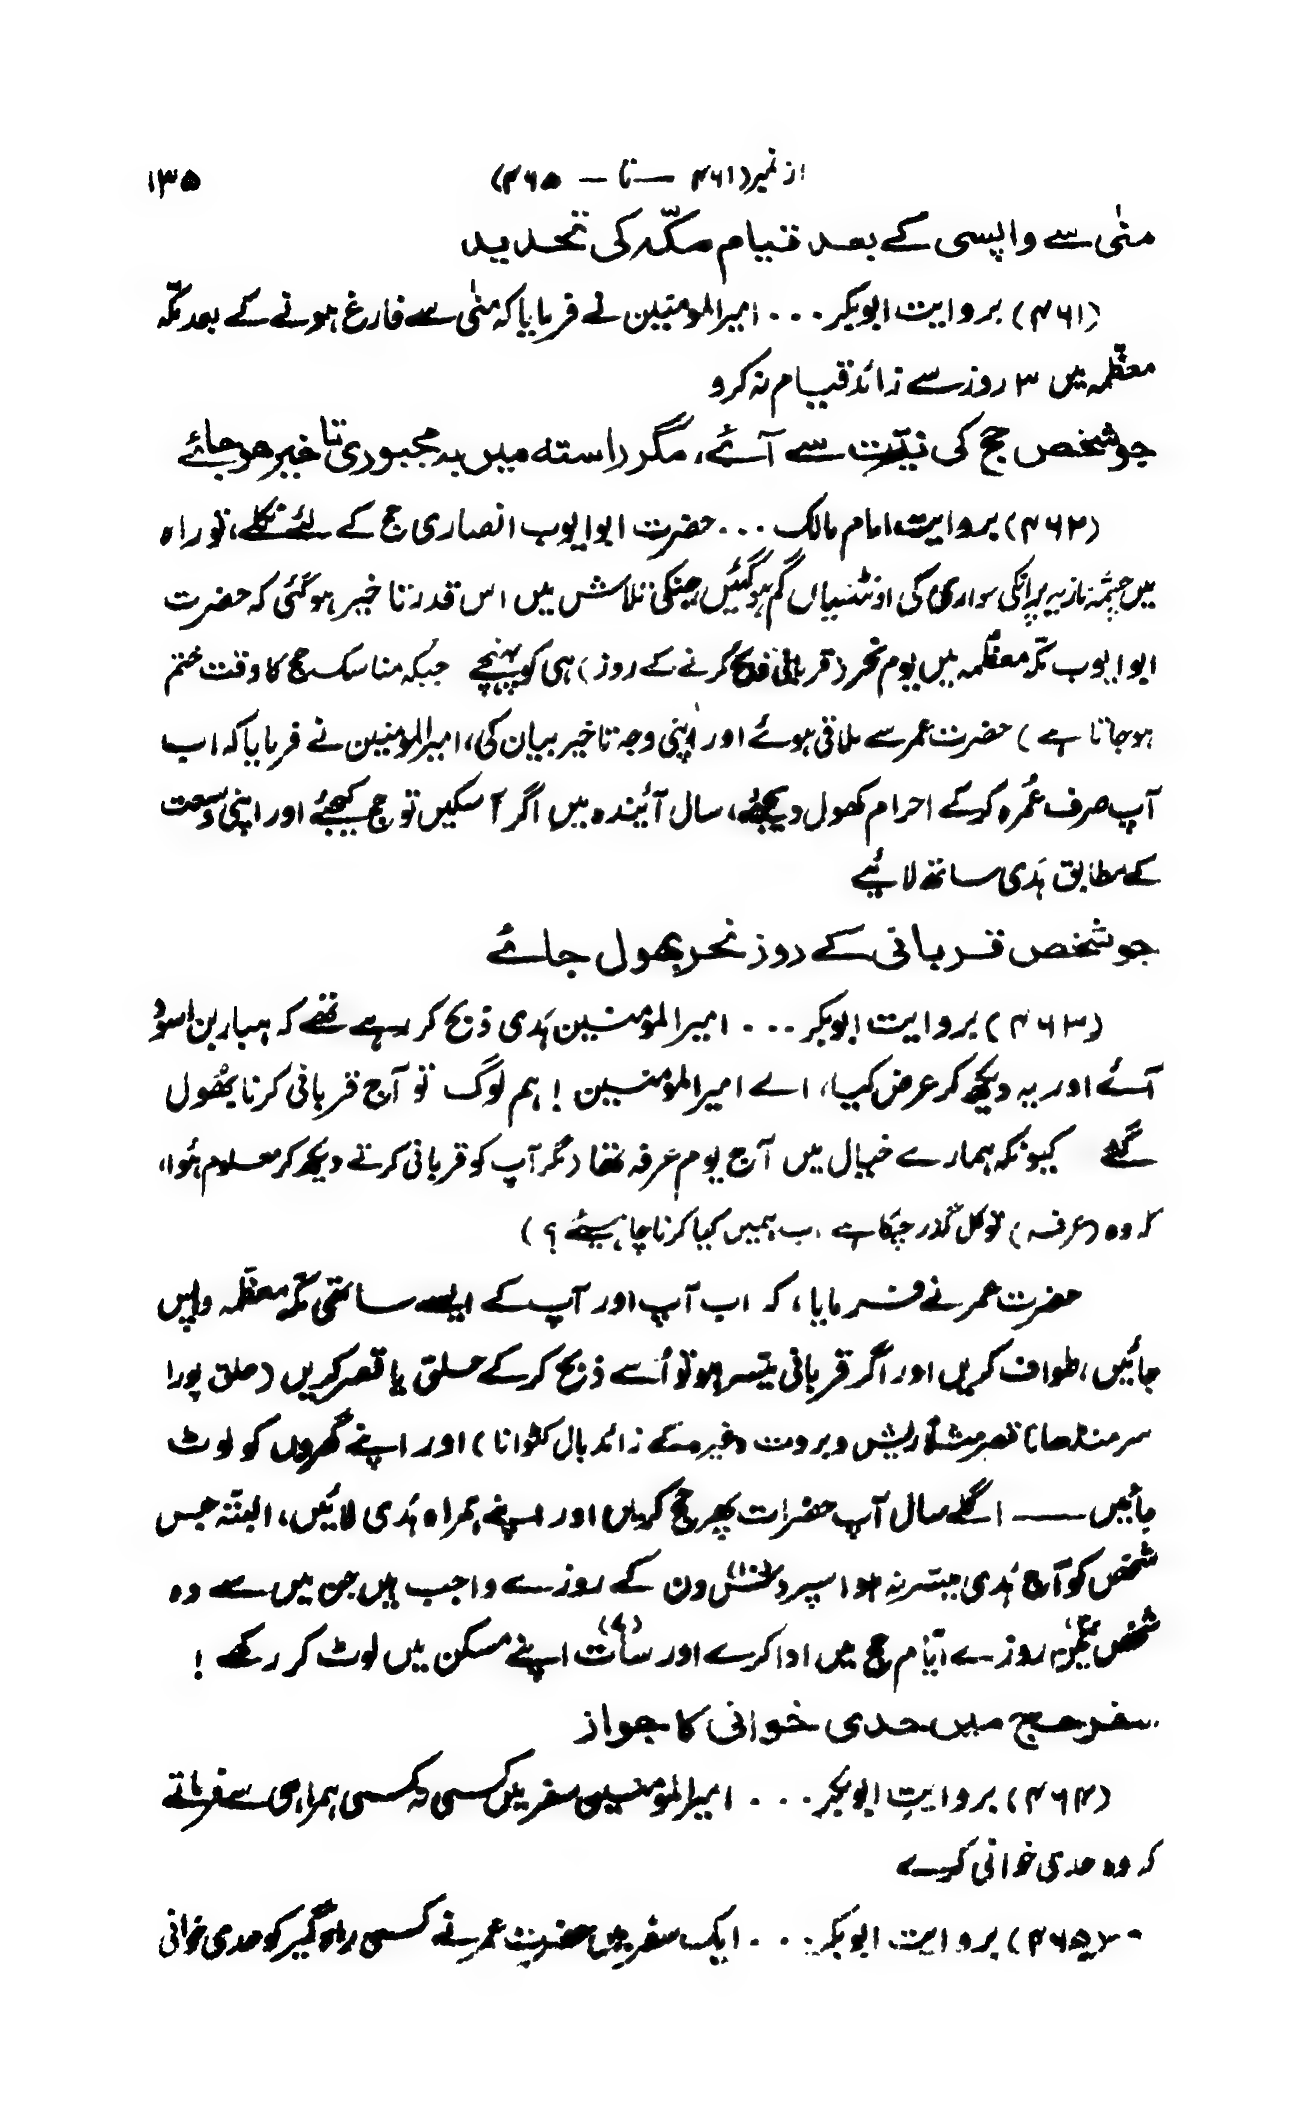 از نمبر (۴۶۱ — تا — ۴۶۵) ۱۳۵
منٰی سے واپسی کے بعد قیام مکّہ کی تحدید
(۴۶۱) بروایت ابوبکر ... امیرالمؤمنین نے فرمایا کہ منٰی سے فارغ ہونے کے بعد مکّہ
معظّمہ میں ۳ روز سے زائد قیام نہ کرو
جو شخص حج کی نیّت سے آئے، مگر راستہ میں بہ مجبوری تاخیر ہو جائے
(۴۶۲) بروایت امام مالک ... حضرت ابوایوب انصاری حج کے لئے نکلے، تو راہ
میں چشمہ نازیہ پر انکی سواری کی اونٹنیاں گم ہو گئیں جنکی تلاش میں اس قدر تاخیر ہو گئی کہ حضرت
ابوایوب مکّہ معظّمہ میں یوم نحر (قربانی ذبح کرنے کے روز) ہی کو پہنچے جبکہ مناسک حج کا وقت ختم
ہو جاتا ہے) حضرت عمر سے ملاقی ہوئے اور اپنی وجہ تاخیر بیان کی، امیرالمؤمنین نے فرمایا کہ اب
آپ صرف عُمرہ کر کے احرام کھول دیجئے، سال آئیندہ میں اگر آ سکیں تو حج کیجئے اور اپنی وسعت
کے مطابق ہَدی ساتھ لائیے
جو شخص قربانی کے روز نحر بھول جائے
(۴۶۳) بروایت ابوبکر ... امیرالمؤمنین ہَدی ذبح کر رہے تھے کہ ہبار بن اسود
آئے اور یہ دیکھ کر عرض کیا، اے امیرالمؤمنین ! ہم لوگ تو آج قربانی کرنا بھُول
گئے کیونکہ ہمارے خیال میں آج یوم عرفہ تھا (مگر آپ کو قربانی کرتے دیکھ کر معلوم ہُوا،
کہ وہ (عرفہ) تو کل گذر چکا ہے اب ہمیں کیا کرنا چاہیئے ؟)
حضرت عمر نے فرمایا، کہ اب آپ اور آپ کے ایسے ساتھی مکّہ معظّمہ واپس
جائیں، طواف کریں اور اگر قربانی میّسر ہو تو اُسے ذبح کر کے حلق یا قصر کریں (حلق پورا
سر منڈھانا قصر مثلاً ریش و بروت وغیرہ کے زائد بال کٹوانا) اور اپنے گھروں کو لوٹ
جائیں —— اگلے سال آپ حضرات پھر حج کریں اور اپنے ہمراہ ہَدی لائیں، البتّہ جس
شخص کو آج ہَدی میسّر نہ ہو اسپر دس (۱۰) دن کے روزے واجب ہیں جن میں سے وہ
شخص تین (۳) روزے ایّام حج میں ادا کرے اور سات (۷) اپنے مسکن میں لوٹ کر رکھے !
سفر حج میں حدی خوانی کا جواز
(۴۶۴) بروایت ابوبکر ... امیرالمؤمنین سفر میں کسی نہ کسی ہمراہی سے فرماتے
کہ وہ حدی خوانی کرے
(۴۶۵) بروایت ابوبکر ... ایک سفر میں حضرت عمر نے کسی راہ گیر کو حدی خوانی